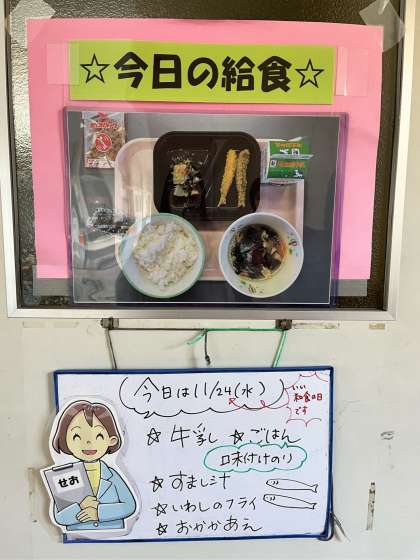 ☆今日の給食☆
今日は11/24(水)
いい
和食の日
です
☆ 牛乳 ☆ ごはん
味付けのり
☆ すまし汁
☆ いわしのフライ
☆ おかかあえ
せお